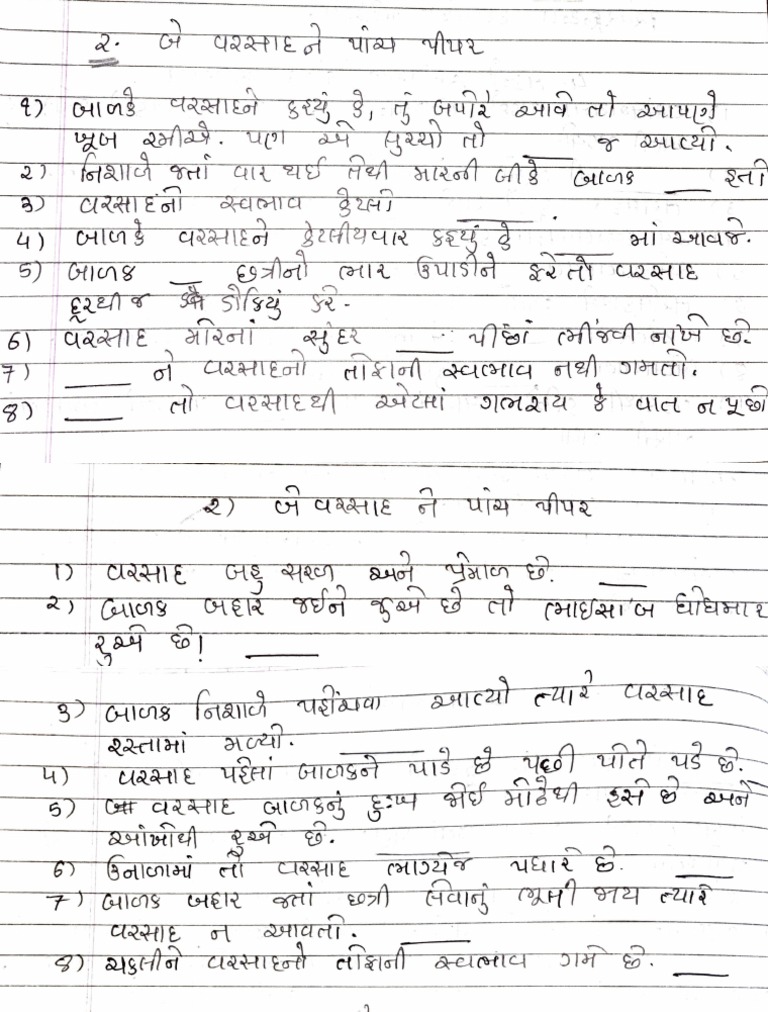 ૨. બે વરસાદ ને પાંચ પીપર
૧) બાળકે વરસાદને કહ્યું કે, તું બપોરે આવે તો આપણે
ખૂબ રમીએ. પણ એ લુચ્ચો તો ___ જ આવ્યો.
૨) નિશાળે જતાં વાર થઈ તેથી મારની બીકે બાળક ___ હતો
૩) વરસાદનો સ્વભાવ કેટલો ___.
૪) બાળકે વરસાદને કેટલીયવાર કહ્યું કે ___ માં આવજે.
૫) બાળક ___ છત્રીનો ભાર ઉપાડીને ફરે તો વરસાદ
દૂરથી જ ડોકિયું કરે.
૬) વરસાદ મોરનાં સુંદર ___ પીછાં ભીંજવી નાખે છે.
૭) ___ ને વરસાદનો તોફાની સ્વભાવ નથી ગમતો.
૮) ___ તો વરસાદથી એટલાં ગભરાય કે વાત ન પૂછો
૨) બે વરસાદ ને પાંચ પીપર
૧) વરસાદ બહુ સરળ અને પ્રેમાળ છે. ___
૨) બાળક બહાર જઈને જુએ છે તો ભાઈસા'બ ધોધમાર
રુએ છે! ___
૩) બાળક નિશાળે પહોંચવા આવ્યો ત્યારે વરસાદ
રસ્તામાં મળ્યો. ___
૪) વરસાદ પહેલાં બાળકને પાડે છે પછી પોતે પડે છે.
૫) વરસાદ બાળકનું દુઃખ જોઈ મોઢેથી હસે છે અને
આંખોથી રુએ છે. ___
૬) ઉનાળામાં તો વરસાદ ભાગ્યેજ પધારે છે. ___
૭) બાળક બહાર જતાં છત્રી લેવાનું ભૂલી જાય ત્યારે
વરસાદ ન આવતો. ___
૮) ચકલીને વરસાદનો તોફાની સ્વભાવ ગમે છે. ___